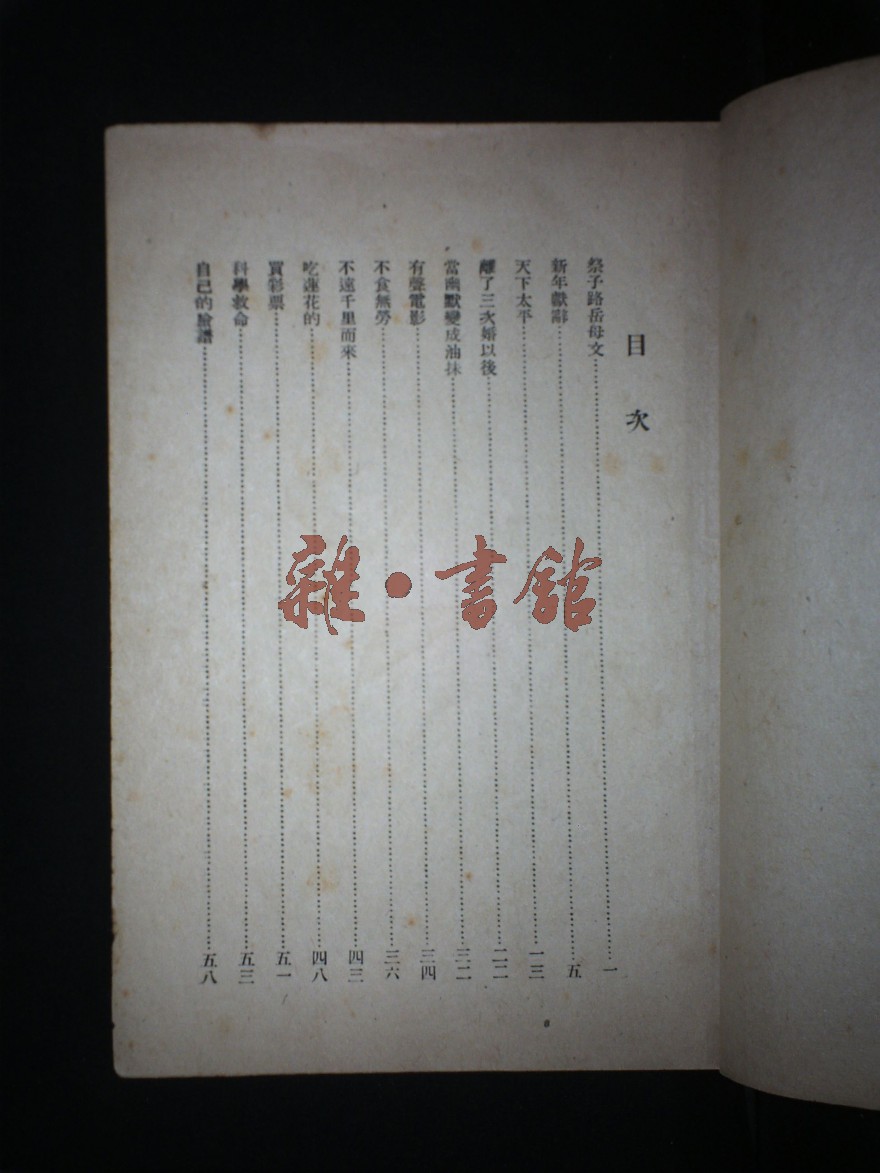 目次
祭子路岳母文……一
新年獻辭……五
天下太平……一三
離了三次婚以後……二二
當幽默變成油抹……三二
有聲電影……三四
不食無勞……三六
不遠千里而來……四三
吃蓮花的……四八
買彩票……五一
科學救命……五三
自己的臉譜……五八
雜·書館